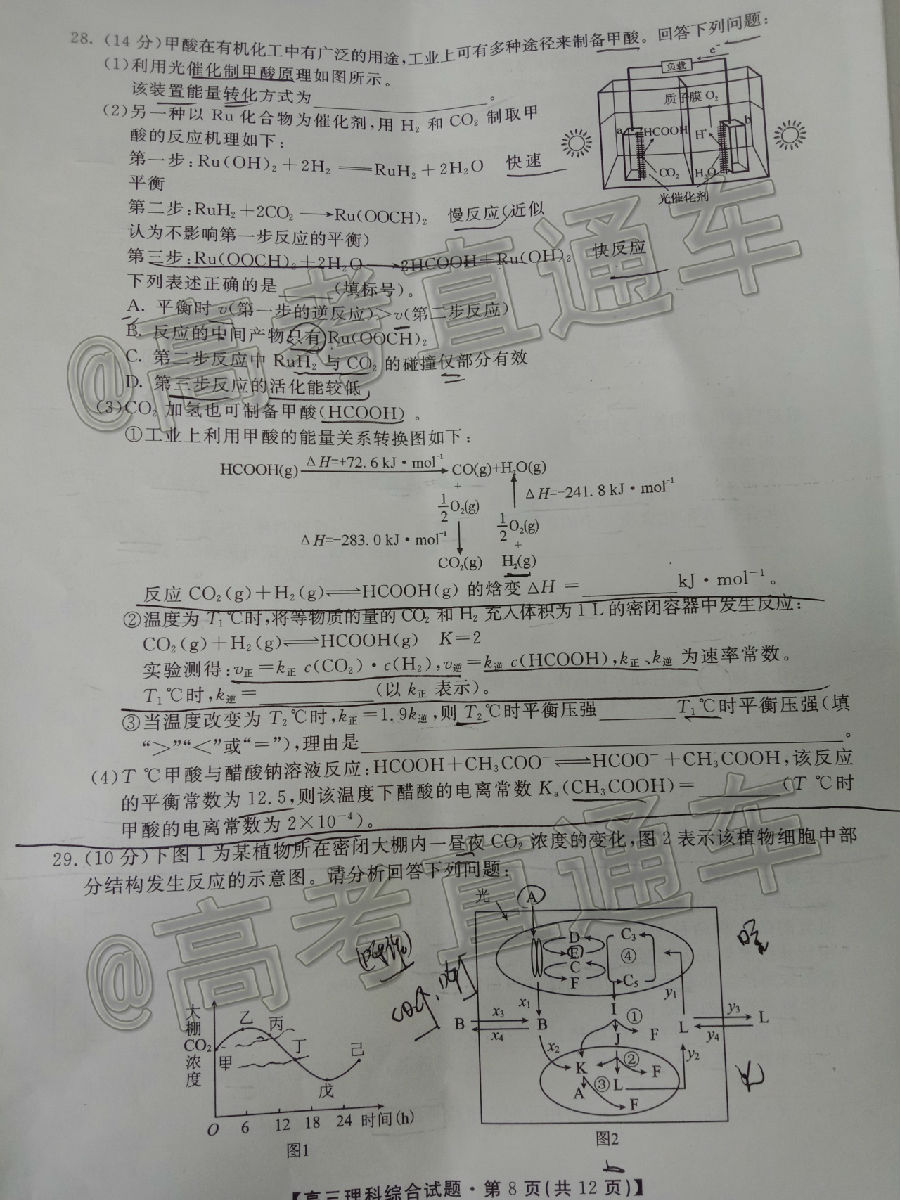 28.(14分)甲酸在有机化工中有广泛的用途,工业上可有多种途径来制备甲酸。回答下列问题:
(1)利用光催化制甲酸原理如图所示。
该装置能量转化方式为____________。
(2)另一种以 Ru 化合物为催化剂,用 H₂ 和 CO₂ 制取甲
酸的反应机理如下:
第一步:Ru(OH)₂+2H₂══RuH₂+2H₂O 快速
平衡
第二步:RuH₂+2CO₂→Ru(OOCH)₂ 慢反应(近似
认为不影响第一步反应的平衡)
第三步:Ru(OOCH)₂+2H₂O→2HCOOH+Ru(OH)₂ 快反应
下列表述正确的是______(填标号)。
A. 平衡时 v(第一步的逆反应)>v(第二步反应)
B. 反应的中间产物只有 Ru(OOCH)₂
C. 第二步反应中 RuH₂ 与 CO₂ 的碰撞仅部分有效
D. 第三步反应的活化能较低
负载
e⁻
质子膜 O₂
a
b
HCOOH
H⁺
CO₂
H₂O
光催化剂
(3)CO₂ 加氢也可制备甲酸(HCOOH)。
①工业上利用甲酸的能量关系转换图如下:
HCOOH(g) ΔH=+72.6 kJ·mol⁻¹ CO(g)+H₂O(g)
+
½O₂(g)
ΔH=-241.8 kJ·mol⁻¹
½O₂(g)
+
ΔH=-283.0 kJ·mol⁻¹
CO₂(g) H₂(g)
反应 CO₂(g)+H₂(g)⇌HCOOH(g) 的焓变 ΔH =________kJ·mol⁻¹。
②温度为 T₁℃时,将等物质的量的 CO₂ 和 H₂ 充入体积为 1 L 的密闭容器中发生反应:
CO₂(g)+H₂(g)⇌HCOOH(g) K=2
实验测得:v正=k正 c(CO₂)·c(H₂),v逆=k逆 c(HCOOH),k正、k逆 为速率常数。
T₁℃时,k逆=__________(以 k正 表示)。
③当温度改变为 T₂℃时,k正=1.9k逆,则 T₂℃时平衡压强______T₁℃时平衡压强(填
“>”“<”或“=”),理由是____________________。
(4)T ℃甲酸与醋酸钠溶液反应:HCOOH+CH₃COO⁻⇌HCOO⁻+CH₃COOH,该反应
的平衡常数为 12.5,则该温度下醋酸的电离常数 Kₐ(CH₃COOH)=________(T ℃时
甲酸的电离常数为 2×10⁻⁴)。
29.(10分)下图 1 为某植物所在密闭大棚内一昼夜 CO₂ 浓度的变化,图 2 表示该植物细胞中部
分结构发生反应的示意图。请分析回答下列问题:
大棚CO₂浓度
甲
乙
丙
丁
戊
己
O 6 12 18 24 时间(h)
图1
光
A
D
E
C
F
C₃
④
C₅
x₁
I
①
F
J
y₁
B
x₃
x₄
B
x₂
L
y₃
y₄
L
K
②
F
③
L
y₂
A
F
图2
@高考直通车
@高考直通车
【高三理科综合试题·第 8 页(共 12 页)】